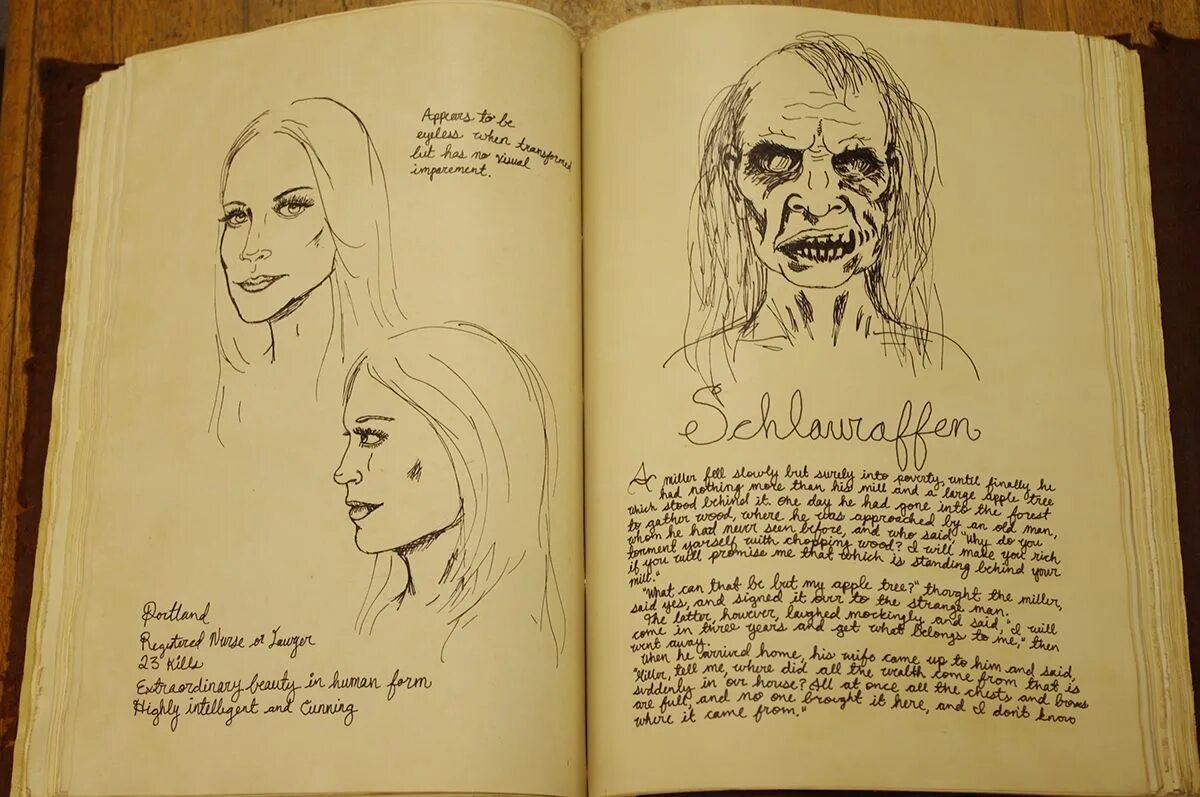 Appears to be
eyeless when transformed
but has no visual
imparement.
Portland
Registered Nurse or Lawyer
23 Kills
Extraordinary beauty in human form
Highly intelligent and Cunning
Schlauraffen
A miller fell slowly but surely into poverty, until finally he
had nothing more than his mill and a large apple tree
which stood behind it. One day he had gone into the forest
to gather wood, where he was approached by an old man,
whom he had never seen before, and who said, "Why do you
torment yarself with chopping wood? I will make you rich
if you will promise me that which is standing behind your
mill."
"What can that be but my apple tree?" thought the miller,
said yes, and signed it orr to the strange man.
The latter, however, laughed mockingly and said, "I will
come in three years and get what belongs to me," then
went away.
When he arrived home, his wife came up to him and said,
"Miller, tell me, where did all the wealth come from that is
suddenly in our house? All at once all the chests and boxes
are full, and no one brought it here, and I don't know
where it came from."